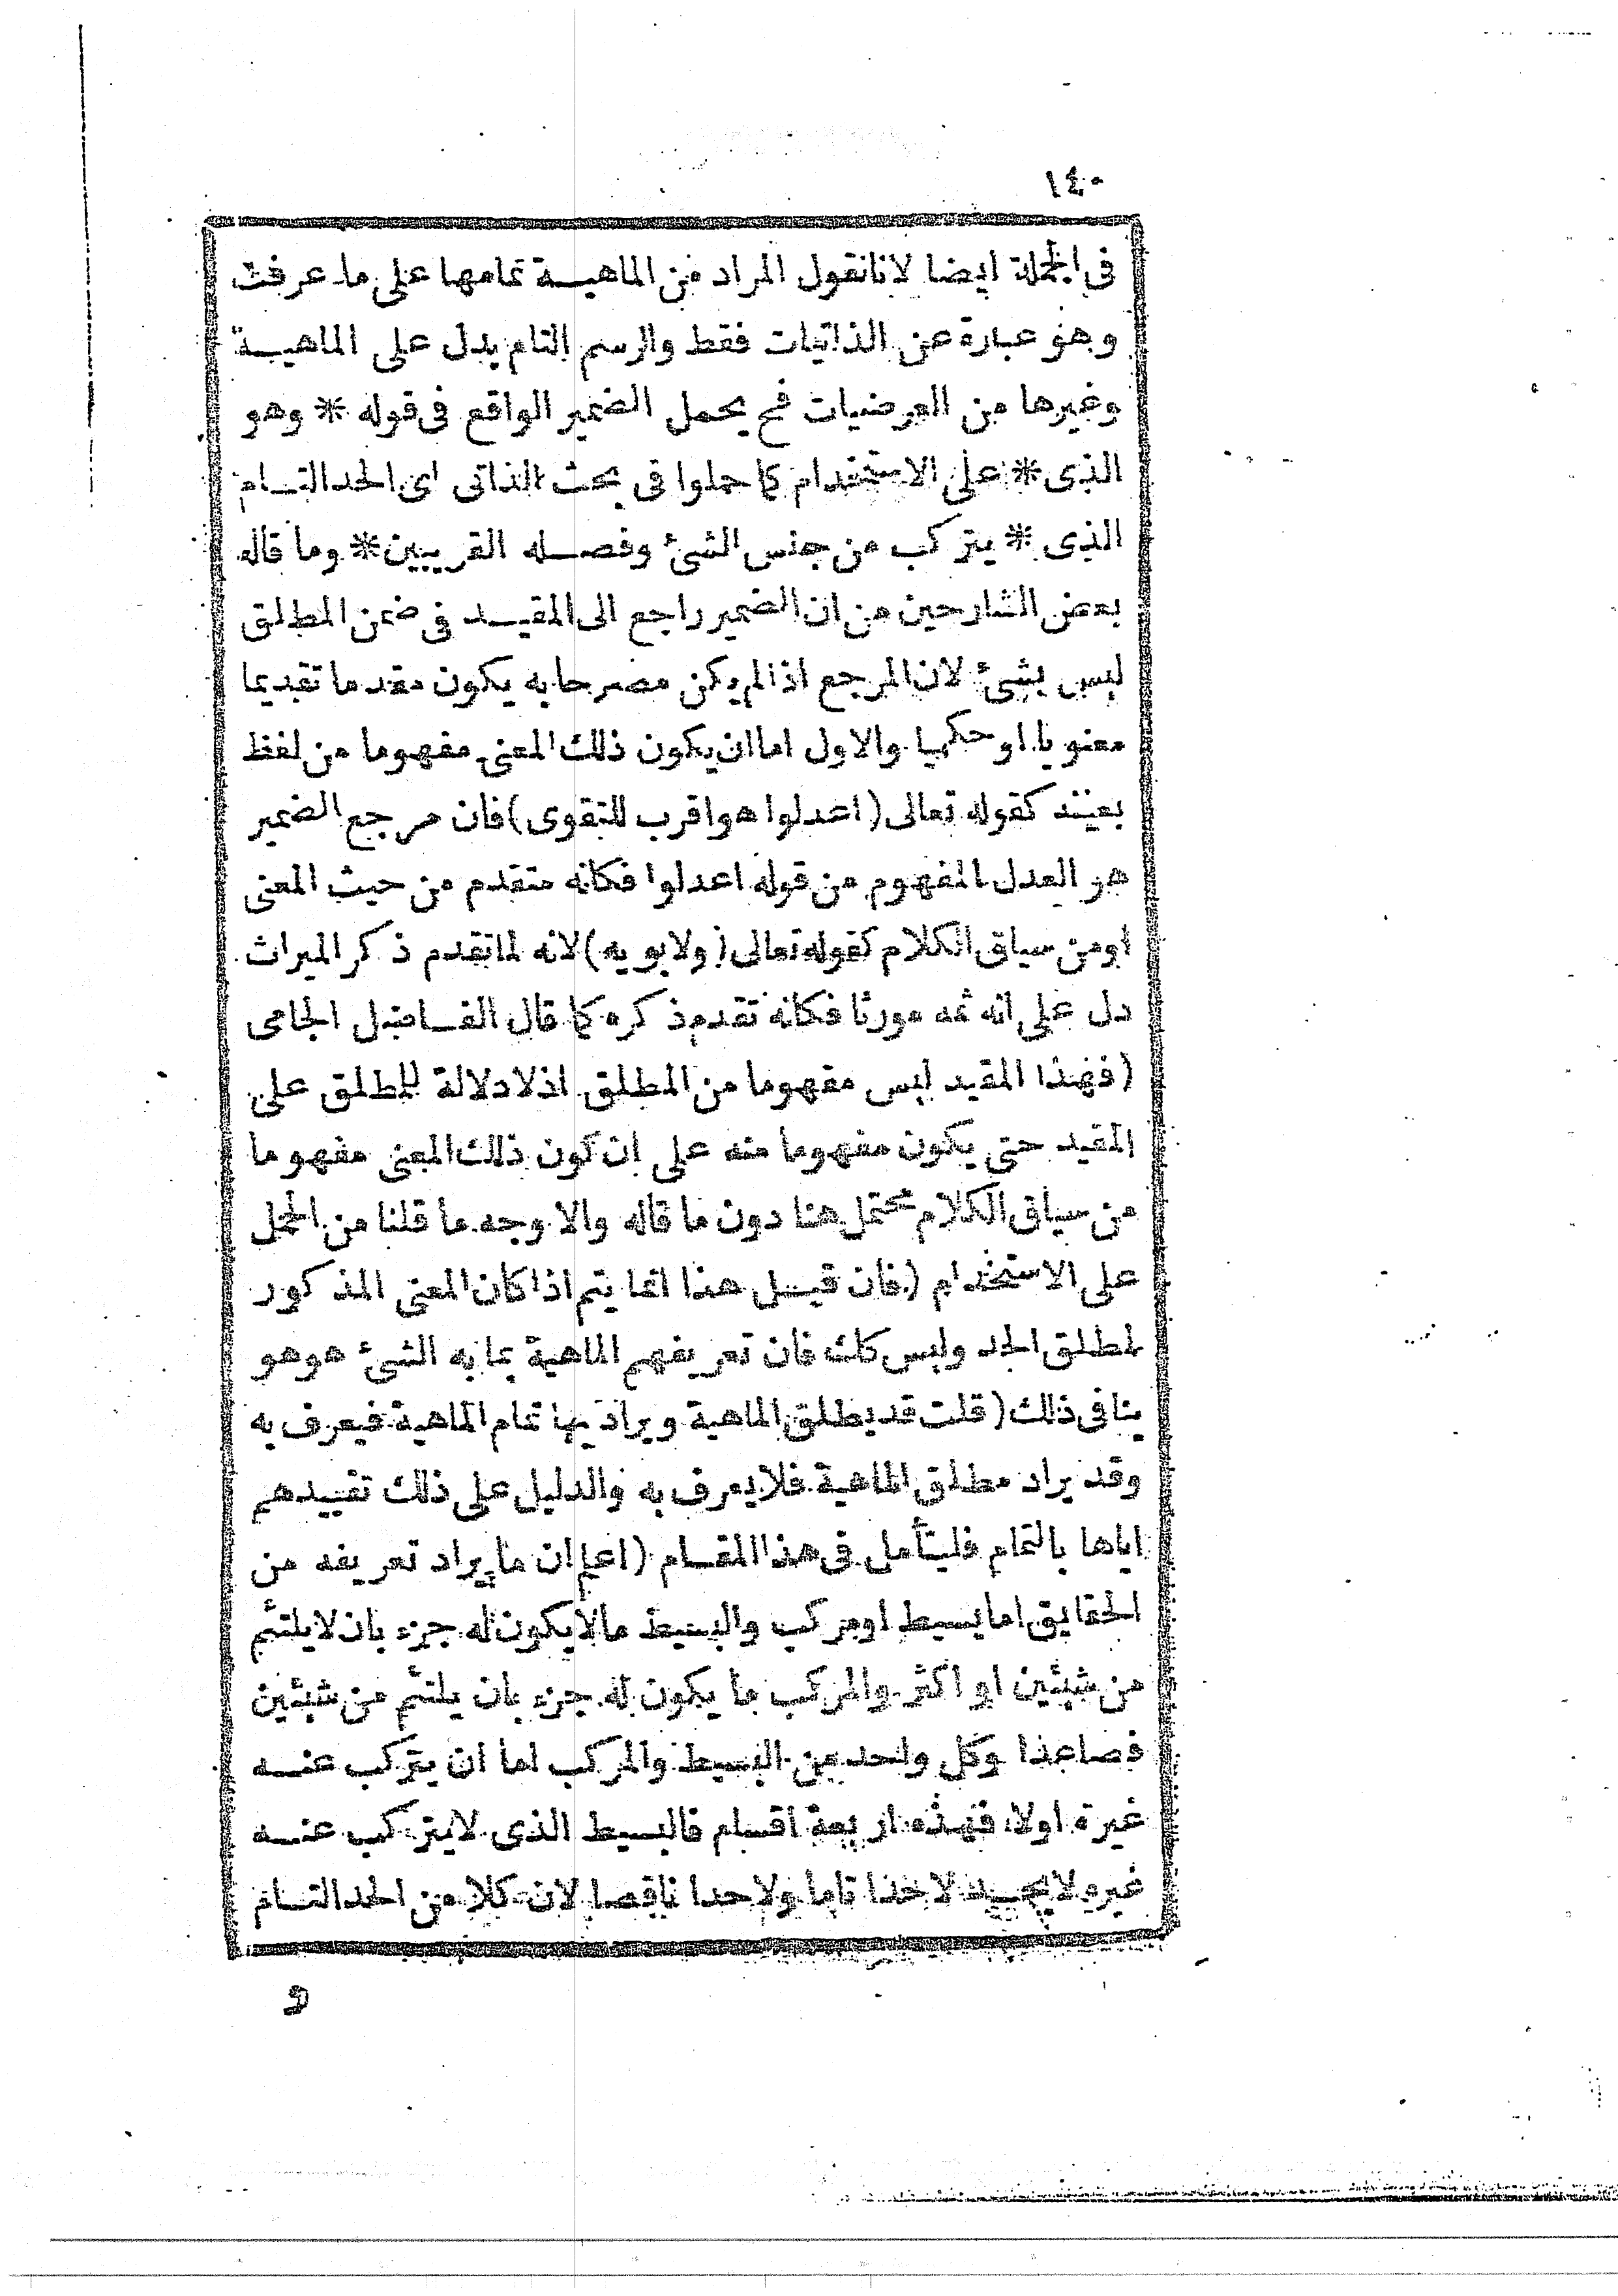 ١٤٠
فى الجملة ايضا لانا نقول المراد من الماهيـة تمامها على ما عرفت
وهو عبارة عن الذاتيات فقط والرسم التام يدل على الماهيـة
وغيرها من العرضيات فح يحمل الضمير الواقع فى قوله * وهو
الذى * على الاستخدام كما حملوا فى بحث الذاتى اى الحد التـام
الذى * يتركب من جنس الشئ وفصـله القريبين * وما قاله
بعض الشارحين من ان الضمير راجع الى المقيـد فى ضمن المطلق
ليس بشئ لان المرجع اذا لم يكن مصرحا به يكون مقدما تقديما
معنويا او حكميا والاول اما ان يكون ذلك المعنى مفهوما من لفظ
بعينه كقوله تعالى (اعدلوا هو اقرب للتقوى) فان مرجع الضمير
هو العدل المفهوم من قوله اعدلوا فكانه متقدم من حيث المعنى
او من سياق الكلام كقوله تعالى (ولابويه) لانه لما تقدم ذكر الميراث
دل على انه ثمه مورثا فكانه تقدم ذكره كما قال الفـاضل الجامى
(فهذا المقيد ليس مفهوما من المطلق اذ لا دلالة للمطلق على
المقيد حتى يكون مفهوما منه على ان كون ذلك المعنى مفهوما
من سياق الكلام محتمل هنا دون ما قاله والاوجه ما قلنا من الحمل
على الاستخدام (فان قيـل هذا انما يتم اذا كان المعنى المذكور
لمطلق الحد وليس كك فان تعريفهم الماهية بما به الشئ هو هو
ينافى ذلك (قلت قد يطلق الماهية ويراد بها تمام الماهية فيعرف به
وقد يراد مطلق الماهية فلا يعرف به والدليل على ذلك تقييدهم
اياها بالتمام فليتأمل فى هذا المقـام (اعلم ان ما يراد تعريفه من
الحقايق اما بسيط او مركب والبسيط ما لا يكون له جزء بان لا يلتئم
من شيئين او اكثر والمركب ما يكون له جزء بان يلتئم من شيئين
فصاعدا وكل واحد من البسيط والمركب اما ان يتركب عنـه
غيره اولا فهذه اربعة اقسام فالبسيط الذى لا يتركب عنـه
غيره لا يحـد لا حدا تاما ولا حدا ناقصا لان كلا من الحد التـام
و